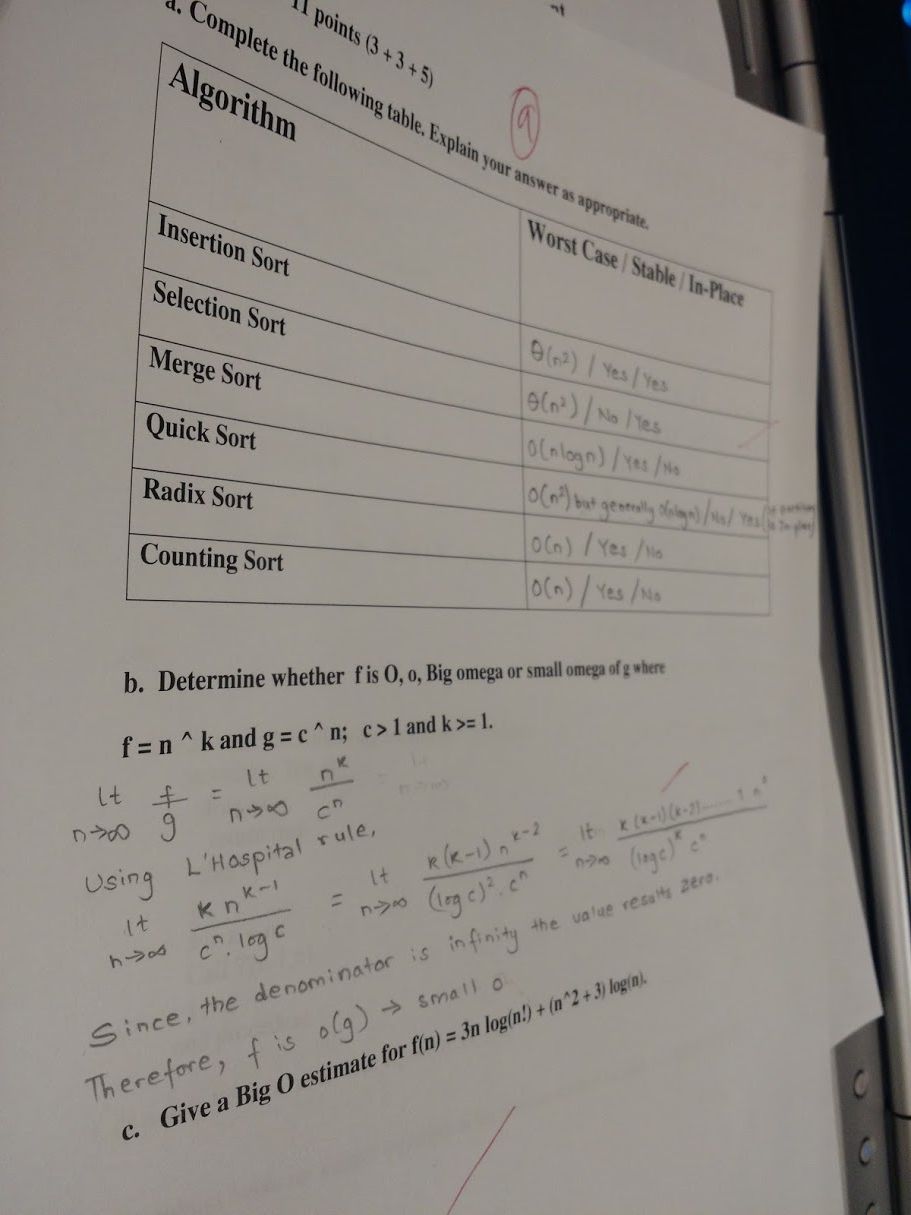 11 points (3 + 3 + 5)
a. Complete the following table. Explain your answer as appropriate.
9
Algorithm
Worst Case / Stable / In-Place
Insertion Sort
θ(n²) / Yes / Yes
Selection Sort
θ(n²) / No / Yes
Merge Sort
O(nlogn) / Yes / No
Quick Sort
O(n²) but generally O(nlogn) / No / Yes (if partition is In-place)
Radix Sort
O(n) / Yes / No
Counting Sort
O(n) / Yes / No
b. Determine whether f is O, o, Big omega or small omega of g where
f = n ^ k and g = c ^ n; c > 1 and k >= 1.
lt n→∞ f/g = lt n→∞ n^k / c^n
Using L'Hospital rule,
lt n→∞ k n^k-1 / c^n. log c = lt n→∞ k(k-1) n^k-2 / (log c)². c^n = lt n→∞ k(k-1)(k-2)......1 n^0 / (log c)^k c^n
Since, the denominator is infinity the value results zero.
Therefore, f is o(g) → small o
c. Give a Big O estimate for f(n) = 3n log(n!) + (n^2 + 3) log(n).